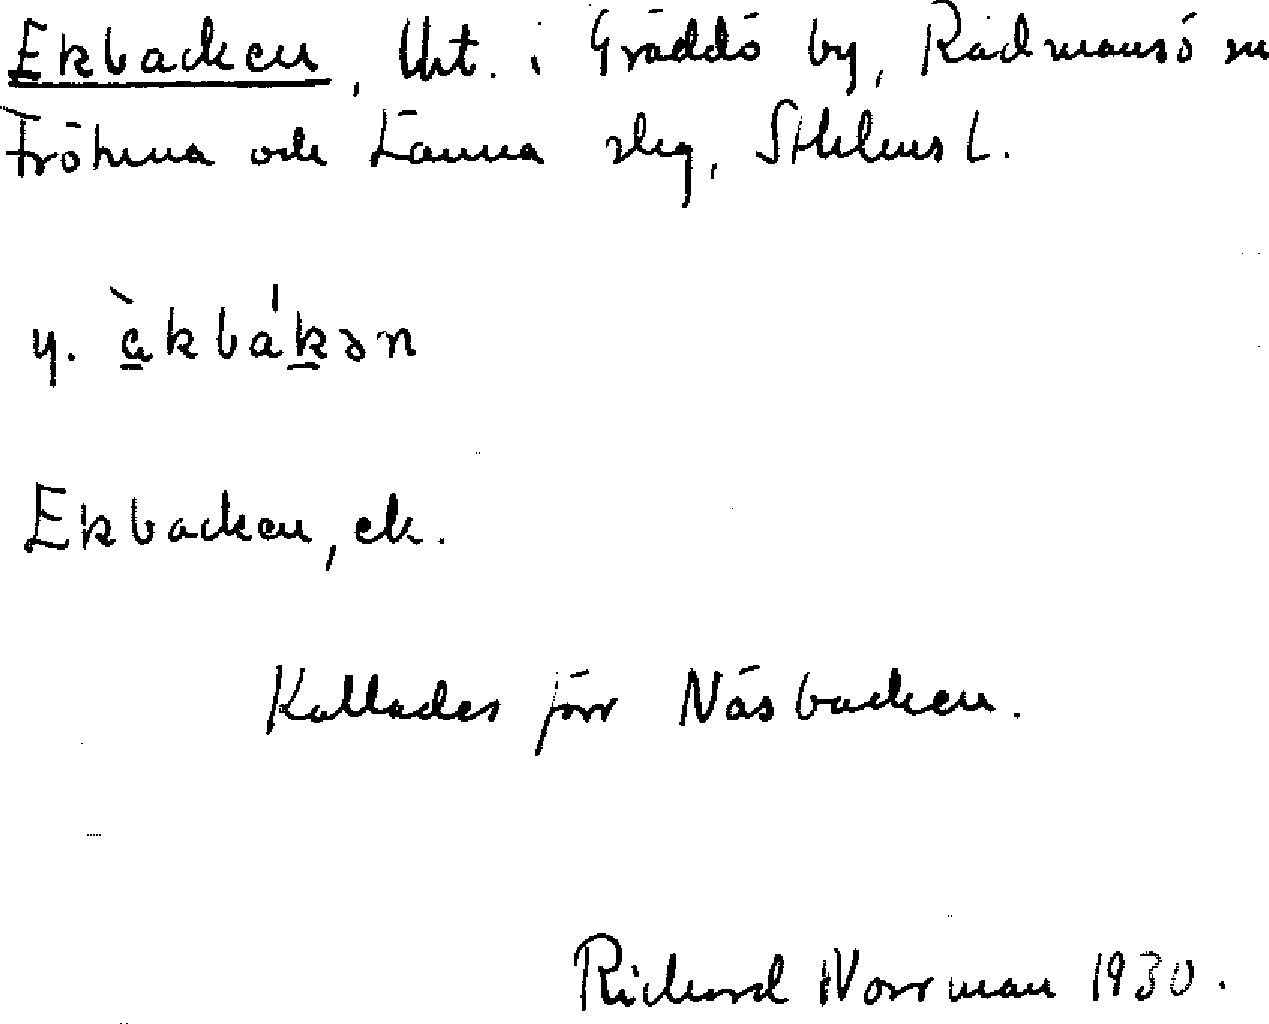 Ekbacken, lht. i Gräddö by, Rådmansö sn
Frötuna och Länna slg, Sthlms l.
y. èkbákən
Ekbacken, ek.
Kallades förr Näsbacken.
Richard Norrman 1930.